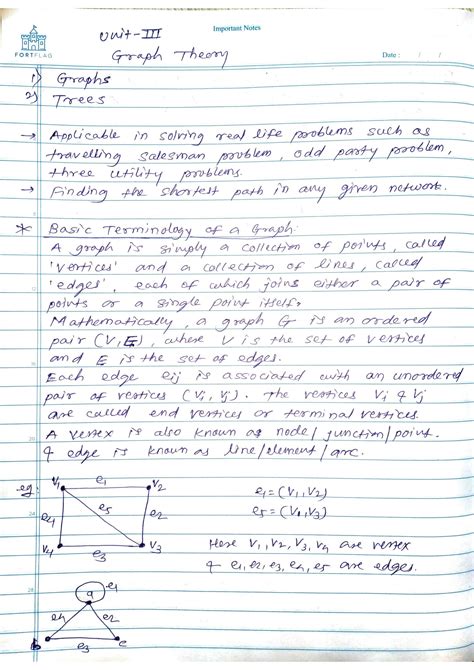 Unit-III
Important Notes
FORTFLAG
Graph Theory
Date :
1) Graphs
2) Trees
→ Applicable in solving real life problems such as
travelling salesman problem, odd party problem,
three utility problems.
→ Finding the shortest path in any given network.
* Basic Terminology of a Graph:
A graph is simply a collection of points, called
'vertices' and a collection of lines, called
'edges', each of which joins either a pair of
points or a single point itself.
Mathematically, a graph G is an ordered
pair (V,E), where V is the set of vertices
and E is the set of edges.
Each edge eij is associated with an unordered
pair of vertices (Vi, Vj). The vertices Vi & Vj
are called end vertices or terminal vertices.
A vertex is also known as node/junction/point.
& edge is known as line/element/arc.
eg:
V1 e1 V2
e1=(V1,V2)
e4 e5 e2
e5=(V1,V3)
V4 e3 V3
Here V1,V2,V3,V4 are vertex
& e1,e2,e3,e4,e5 are edges.
e1
a
e4 e2
b e3 c